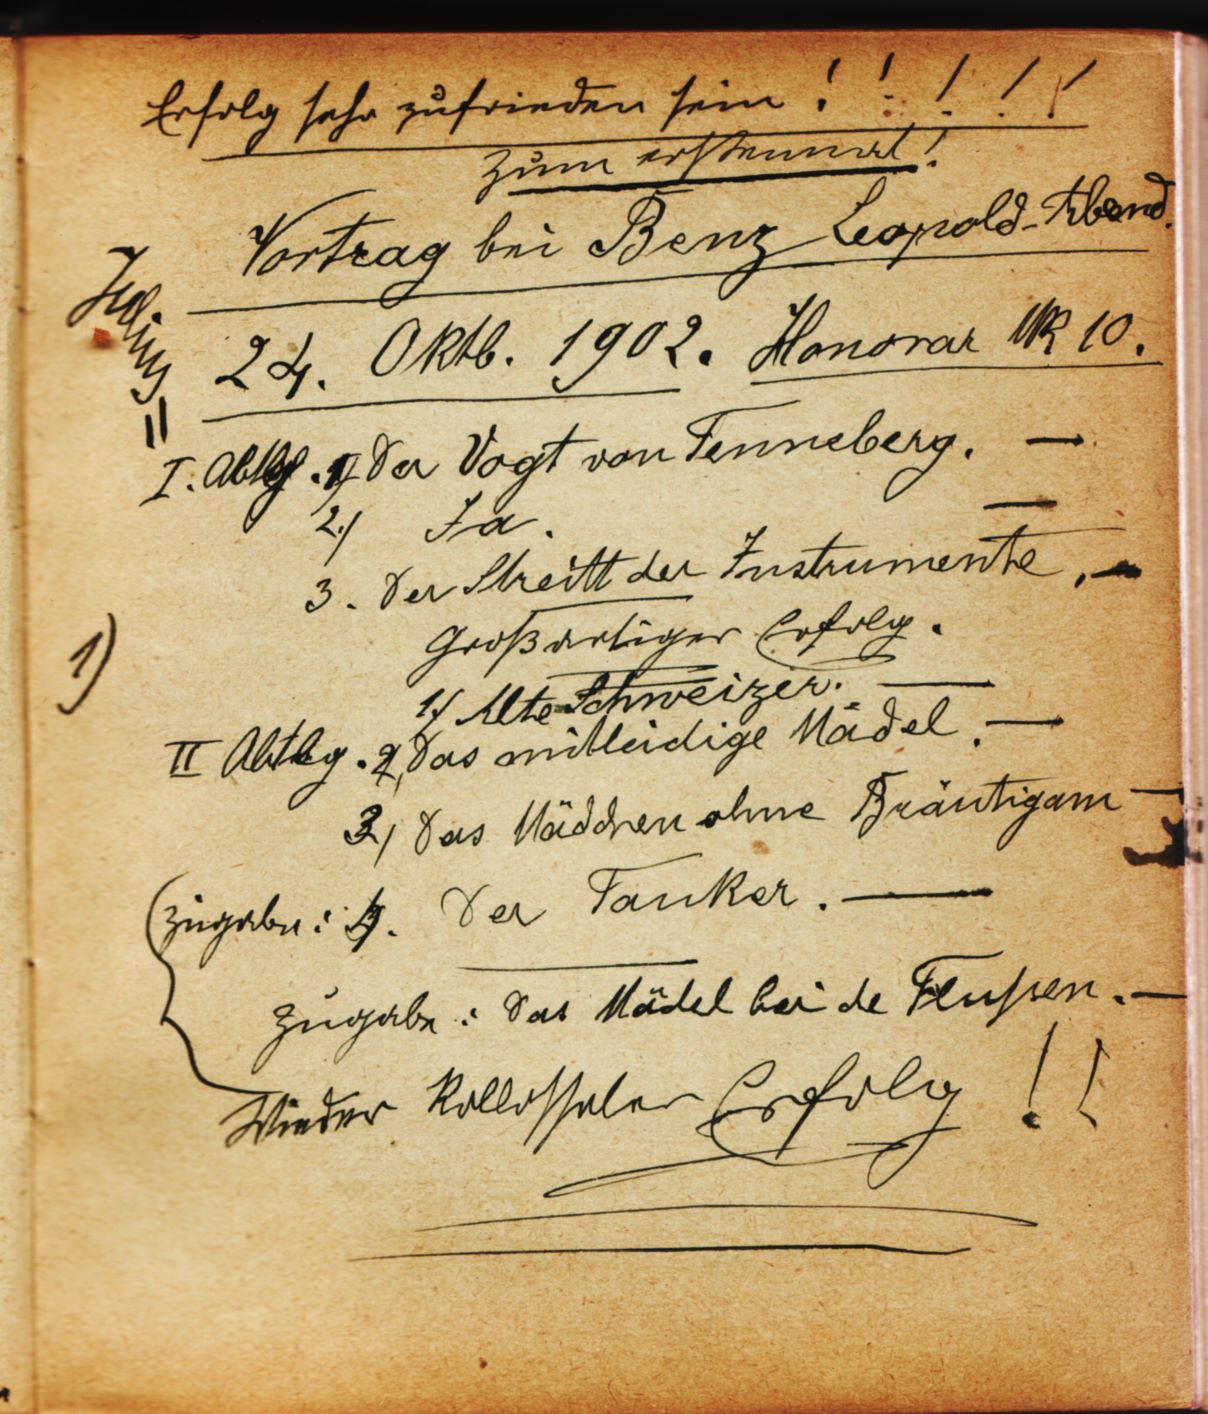 Erfolg sehr zufrieden sein ! ! ! ! !
zum erstenmal !
Vortrag bei Benz Leopold-Abend.
Julius
24. Oktb. 1902. Honorar Mk 10.
I. Abtlg. 1) Der Vogt von Tenneberg. —
2.) Ja. —
3. Der Streitt der Instrumente. —
Großartiger Erfolg.
1)
1.) Alte Schweizer. —
II Abtlg. 2) Das mitleidige Mädel. —
3) Das Mädchen ohne Bräutigam —
(Zugabe: 4. Der Tanker. —
Zugabe: Das Mädel bei de Flussen. —
Wieder kollossaler Erfolg !!